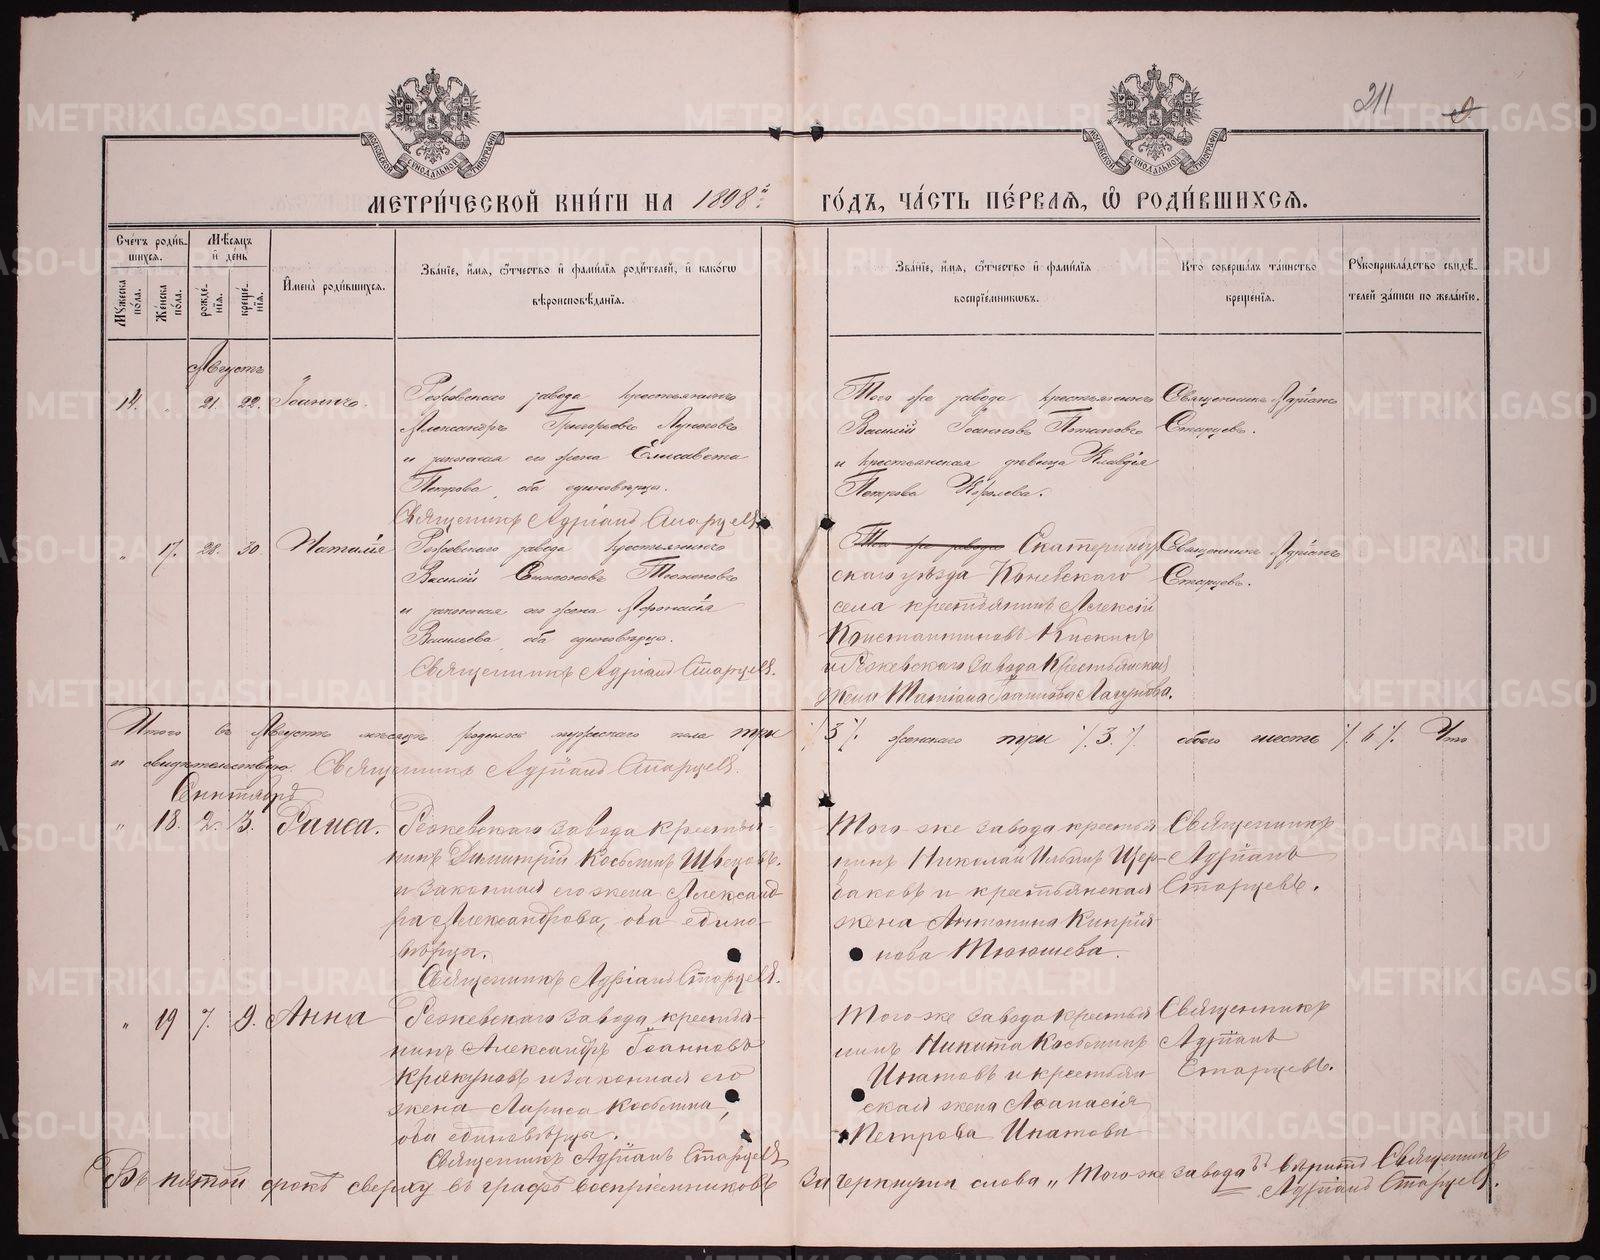 211
МЕТРИ́ЧЕСКОЙ КНИ́ГИ НА 1898й ГО́ДЪ, ЧА́СТЬ ПЕ́РВАѦ, Ѡ҆ РОДИ́ВШИХСѦ.
Сче́тъ роди́вшихсѧ.
Мꙋ́жеска по́ла.
Же́нска по́ла.
Мѣ́сѧцъ и҆ де́нь
рожде́нїѧ.
креще́нїѧ.
И҆мена̀ роди́вшихсѧ.
Зва́нїе, и҆́мѧ, ѻ҆́тчество и҆ фами́лїѧ роди́телей, и҆ како́гѡ
вѣроисповѣ́данїѧ.
Зва́нїе, и҆́мѧ, ѻ҆́тчество и҆ фами́лїѧ
воспрїе́мникѡвъ.
Кто̀ соверша́лъ та́инство
креще́нїѧ.
Рꙋкоприкла́дство свидѣ́телей за́писи по жела́нїю.
Августъ
14. " 21. 22. Іоаннъ.
Режевскаго завода крестьянинъ
Александръ Григорьевъ
и законная его жена Елисавета
Петрова, оба единовѣрцы.
Священникъ Адріанъ Старцевъ
Того же завода крестьянинъ
Василій Іоанновъ Потаповъ
и крестьянская дѣвица Клавдія
Петрова Королева.
Священникъ Адріанъ
Старцевъ.
" 17. 28. 30 Наталія
Режевскаго завода крестьянинъ
Василій Симеоновъ
и законная его жена Афанасія
Васильева, оба единовѣрцы.
Священникъ Адріанъ Старцевъ.
Того же завода Екатеринбур
скаго уѣзда Коневскаго
села крестьянинъ Алексій
Константиновъ Кискинъ
и Режевскаго завода крестьянская
жена Татіана Іоаннова
Священникъ Адріанъ
Старцевъ.
Итого въ Августѣ мѣсяцѣ родилось мужескаго пола три /3/. женскаго три /.3./. обоего шесть /.6/. Что
и свидѣтельствую. Священникъ Адріанъ Старцевъ.
Сентябрь
" 18. 2. 3. Раиса.
Режевскаго завода крестья
нинъ Димитрій Косьминъ Швецовъ
и законная его жена Александ
ра Александрова, оба едино-
вѣрцы.
Священникъ Адріанъ Старцевъ.
Того же завода крестья
нинъ Николай Ильинъ Щер-
баковъ и крестьянская
жена Антонина Кипрія
нова Тююшева.
Священникъ
Адріанъ
Старцевъ.
" 19 7. 9. Анна
Режевскаго завода крестья-
нинъ Александръ Іоанновъ
Крякуновъ и законная его
жена Лариса Косьмина,
оба единовѣрцы.
Священникъ Адріанъ Старцевъ
Того же завода крестья
нинъ Никита Косьминъ
Ипатовъ и крестьян
ская жена Афанасія
Петрова Ипатова
Священникъ
Адріанъ
Старцевъ.
Въ пятой строкѣ сверху въ графѣ воспріемниковъ зачеркнуты слова „Того же завода" вѣрить Священникъ
Адріанъ Старцевъ.
METRIKI.GASO-URAL.RU